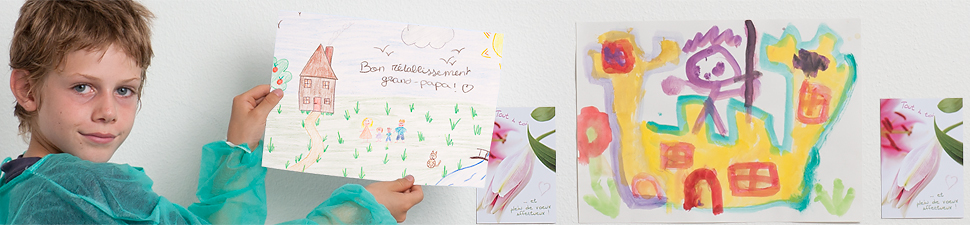 Bon rétablissement
grand-papa!
Tout à toi
... et
plein de vœux
affectueux !
Tout à toi
... et
plein de vœux
affectueux !